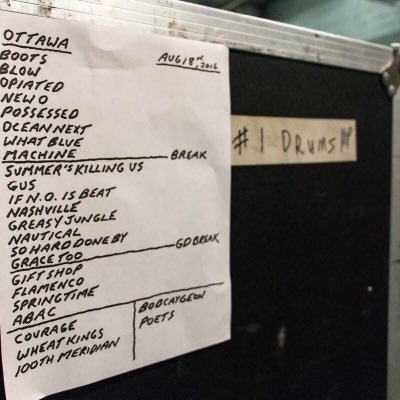 OTTAWA
AUG 18ST, 2016
BOOTS
BLOW
OPIATED
NEW O
POSSESSED
OCEAN NEXT
WHAT BLUE
MACHINE BREAK
SUMMER'S KILLING US
GUS
IF N.O. IS BEAT
NASHVILLE
GREASY JUNGLE
NAUTICAL
SO HARD DONE BY
GRACE TOO GD BREAK
GIFT SHOP
FLAMENCO
SPRINGTIME
ABAC
COURAGE
WHEAT KINGS
100TH MERIDIAN
BOBCAYGEON
POETS
#1 DRUMS